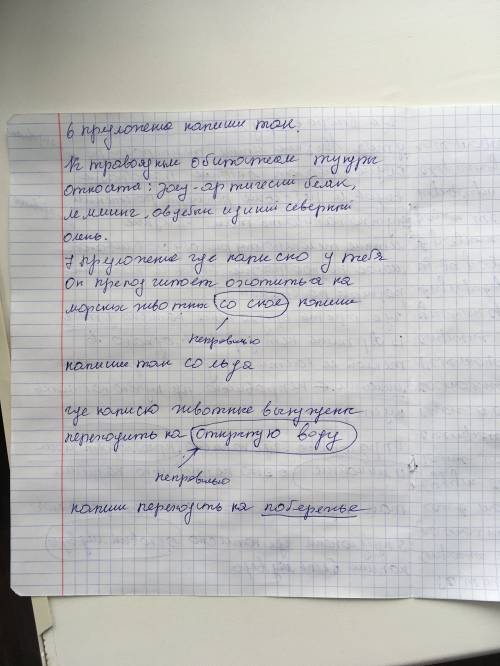 6 пруложене напиши так.
К травоядным обитателям тундры
относятся: заяц-арктический беляк,
лемминг, овцебык и дикий северный
олень.
7 пруложение где написно у тебя
он предпочитает охотиться на
морских животных со свое напиши
неправльно
напиши так со льда
где написно животные вынуждены
переходить на открутую воду
неправльно
напиши переходить на поберенье